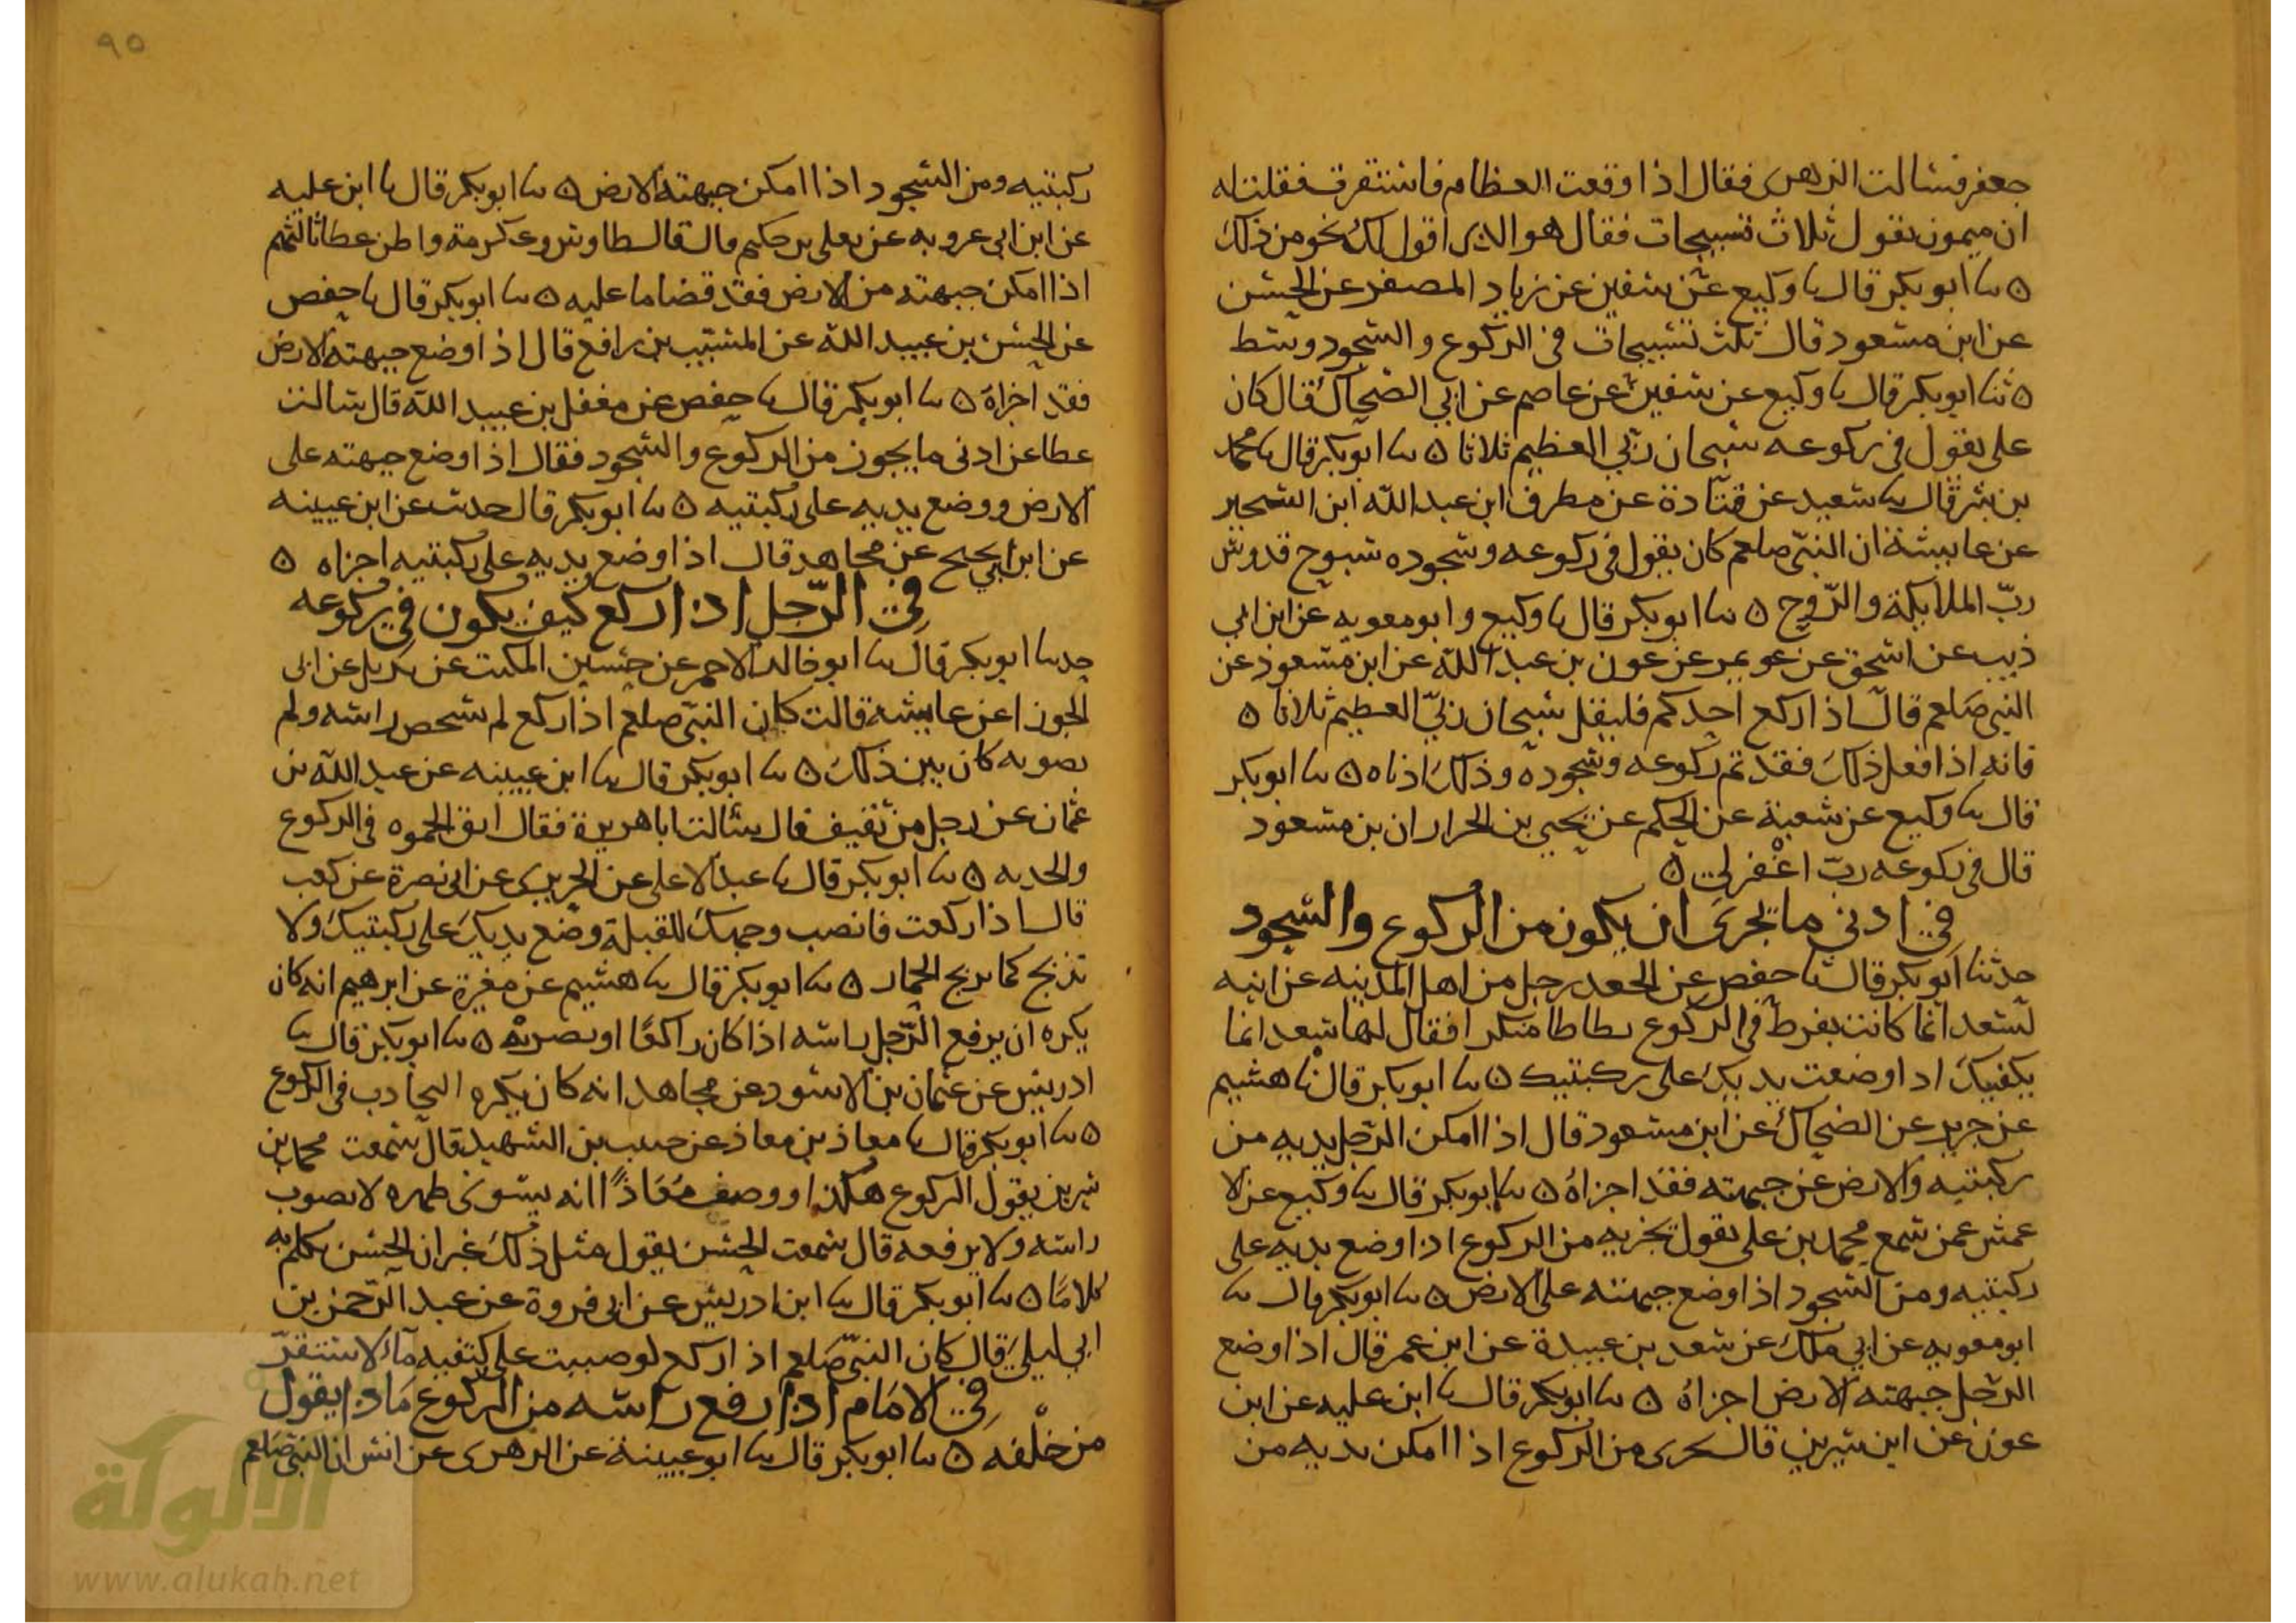 جعفر فسالت الزهرى فقال اذا وقعت العظام فاستقرت فقلت له
ان ميمون يقول ثلاث تسبيحات فقال هو الذى اقول لك نحو من ذلك
ه ثنا ابو بكر قال ثنا وكيع عن سفين عن زياد المصفر عن الحسن
عن ابن مسعود قال ثلث تسبيحات فى الركوع والسجود وسط
ه ثنا ابو بكر قال ثنا وكيع عن سفين عن عاصم عن ابي الضحاك قال كان
على يقول فى ركوعه سبحان ربي العظيم ثلاثا ه ثنا ابو بكر قال ثنا محمد
بن بشر قال ثنا سعيد عن قتادة عن مطرف ابن عبد الله ابن الشخير
عن عايشة ان النبى صلعم كان يقول فى ركوعه وسجوده سبوح قدوس
ربّ الملايكة والروح ه ثنا ابو بكر قال ثنا وكيع وابو معويه عن ابن ابي
ذيب عن اسحق عن عون بن عبد الله عن ابن مسعود عن
النبى صلعم قال اذا ركع احدكم فليقل سبحان ربيّ العظيم ثلاثا ه
فانه اذا فعل ذلك فقد تم ركوعه وسجوده وذلك ادناه ه ثنا ابو بكر
قال ثنا وكيع عن شعبة عن الحكم عن يحيى بن الجزار ان بن مسعود
قال فى ركوعه ربّ اغفر لى ه
فى ادنى ما يجزى ان يكون من الركوع والسجود
حدثنا ابو بكر قال ثنا حفص عن الجعد رجل من اهل المدينه عن ابنه
لسعد انما كانت يفرط فى الركوع تطاطا منكرا فقال لها سعد انما
يكفيك اذا وضعت يديك على ركبتيك ه ثنا ابو بكر قال ثنا هشيم
عن جويبر عن الضحاك عن ابن مسعود قال اذا امكن الرجل يديه من
ركبتيه والارض عن جبهته فقد اجزاه ه ثنا ابو بكر قال ثنا وكيع عن لا
عمش عمن سمع محمد بن على يقول يجزيه من الركوع اذا وضع يديه على
ركبتيه ومن السجود اذا وضع جبهته على الارض ه ثنا ابو بكر قال ثنا
ابو معويه عن ابي ملك عن سعد بن عبيدة عن ابن عمر قال اذا وضع
الرجل جبهته الارض اجزاه ه ثنا ابو بكر قال ثنا ابن عليه عن ابن
عون عن ابن سيرين قال يجزى من الركوع اذا امكن يديه من
٩٥
ركبتيه ومن السجود اذا امكن جبهته الارض ه ثنا ابو بكر قال ثنا ابن عليه
عن ابن ابى عروبه عن يعلى بن حكيم قال قال طاوس وعكرمة واظن عطا ثالثهم
اذا امكن جبهته من الارض فقد قضا ما عليه ه ثنا ابو بكر قال ثنا حفص
عن الحسن بن عبيد الله عن المسيب بن رافع قال اذا وضع جبهته الارض
فقد اجزاه ه ثنا ابو بكر قال ثنا حفص عن مغفل بن عبيد الله قال سالت
عطا عن ادنى ما يجوز من الركوع والسجود فقال اذا وضع جبهته على
الارض ووضع يديه على ركبتيه ه ثنا ابو بكر قال حدثت عن ابن عيينه
عن ابن ابي نجيح عن مجاهد قال اذا وضع يديه على ركبتيه اجزاه ه
فى الرّجل اذا ركع كيف يكون فى ركوعه
حدثنا ابو بكر قال ثنا ابو خالد الاحمر عن حسين المكتب عن بديل عن ابى
الجوزا عن عايشه قالت كان النبى صلعم اذا ركع لم يشخص راسه ولم
يصوبه كان بين ذلك ه ثنا ابو بكر قال ثنا ابن عيينه عن عبد الله بن
عثمان عن رجل من ثقيف قال سالت ابا هريرة فقال اتق الحموه فى الركوع
والحدبه ه ثنا ابو بكر قال ثنا عبد الاعلى عن الجريرى عن ابى نضرة عن كعب
قال اذا ركعت فانصب وجهك للقبلة وضع يديك على ركبتيك ولا
تدبح كما يدبح الحمار ه ثنا ابو بكر قال ثنا هشيم عن مغيرة عن ابرهيم انه كان
يكره ان يرفع الرّجل راسه اذا كان راكعًا او يصوبه ه ثنا ابو بكر قال ثنا
ادريس عن عثمان بن الاسود عن مجاهد انه كان يكره التحادب فى الركوع
ه ثنا ابو بكر قال ثنا معاذ بن معاذ عن حبيب بن الشهيد قال سمعت محمد بن
سيرين يقول الركوع هكذا ووصف مُعَاذًا انه يسوى ظهره لا يصوب
راسه ولا يرفعه قال سمعت الحسن يقول مثل ذلك غير ان الحسن تكلم به
كلامًا ه ثنا ابو بكر قال ثنا ابن ادريس عن ابى فروة عن عبد الرّحمن بن
ابي ليلى قال كان النبى صلعم اذا ركع لو صببت على كتفيه مآء لاستقرّ
فى الامَام اذا رفع راسه من الركوع مَاذا يقول
من خلْفه ه ثنا ابو بكر قال ثنا ابو عيينة عن الزهرى عن انس ان النبى صلعم
الألوكة
www.alukah.net